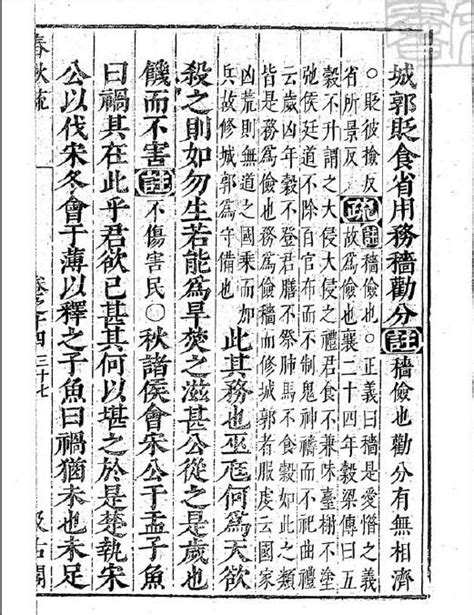 城郭貶食省用務穡勸分註穡儉也勸分有無相濟
○貶彼撿反
省所景反
疏註穡儉也○正義曰穡是愛惜之義
故爲儉也襄二十四年穀梁傳曰五
穀不升謂之大侵大侵之禮君食不兼味臺榭不塗
弛侯廷道不除百官布而不制鬼神禱而不祀曲禮
云歲凶年穀不登君膳不祭肺馬不食穀如此之類
皆是務爲儉也務儉穡而修城郭者服虔云國家
凶荒則無道之國乘而加
兵故修城郭爲守備也
此其務也巫尫何爲天欲
殺之則如勿生若能爲旱焚之滋甚公從之是歲也
饑而不害註不傷害民○秋諸侯會宋公于盂子魚
曰禍其在此乎君欲已甚其何以堪之於是楚執宋
公以伐宋冬會于薄以釋之子魚曰禍猶未也未足
春秋疏
卷之十四 三十七
汲古閣